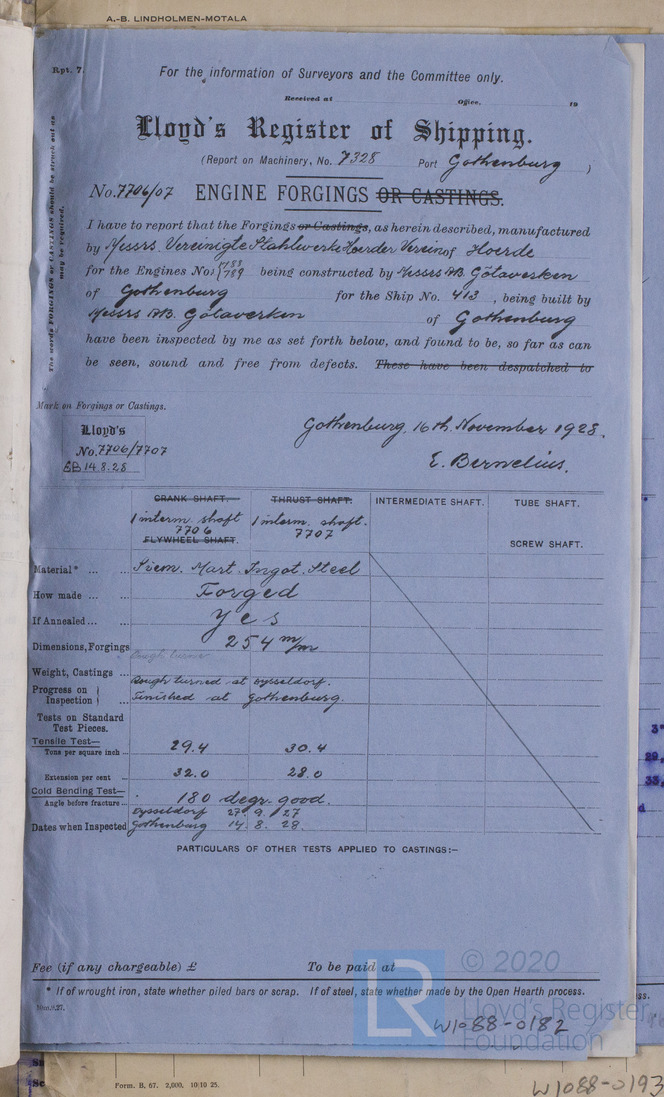 A.-B. LINDHOLMEN-MOTALA
Rpt. 7.
For the information of Surveyors and the Committee only.
Received at Office, 19
Lloyd's Register of Shipping.
(Report on Machinery, No. 7328 Port Gothenburg )
No. 7706/07 ENGINE FORGINGS OR CASTINGS.
The words FORGINGS or CASTINGS should be struck out as
may be required.
I have to report that the Forgings or Castings, as herein described, manufactured
by Messrs. Vereinigte Stahlwerke Hoerder Verein of Hoerde
for the Engines No: 788/789 being constructed by Messrs AB. Götaverken
of Gothenburg for the Ship No. 413, being built by
Messrs AB. Götaverken of Gothenburg
have been inspected by me as set forth below, and found to be, so far as can
be seen, sound and free from defects. These have been despatched to
Mark on Forgings or Castings.
Lloyd's
No. 7706/7707
EB 14.8.28
Gothenburg, 16th. November 1928.
E. Bernelius.
CRANK SHAFT. THRUST SHAFT. INTERMEDIATE SHAFT. TUBE SHAFT.
1 interm shaft 1 interm. shaft.
7706 7707
FLYWHEEL SHAFT. SCREW SHAFT.
Material* ... ... Siem. Mart. Ingot. Steel
How made ... ... Forged
If Annealed ... ... Yes
Dimensions, Forgings 254 m/m
Rough turned
Weight, Castings ... Rough turned at Dysseldorf.
Progress on Inspection ... Finished at Gothenburg.
Tests on Standard
Test Pieces.
Tensile Test—
Tons per square inch ... 29.4 30.4
Extension per cent ... 32.0 28.0
Cold Bending Test—
Angle before fracture ... 180 degr. good.
Dysseldorf 27. 9. 27
Dates when Inspected Gothenburg 14. 8. 28
PARTICULARS OF OTHER TESTS APPLIED TO CASTINGS:—
Fee (if any chargeable) £ To be paid at
* If of wrought iron, state whether piled bars or scrap. If of steel, state whether made by the Open Hearth process.
LR © 2020
Lloyd's Register
Foundation
W1088-0182
Form. B, 67. 2,000. 10|10 25.
W1088-0193